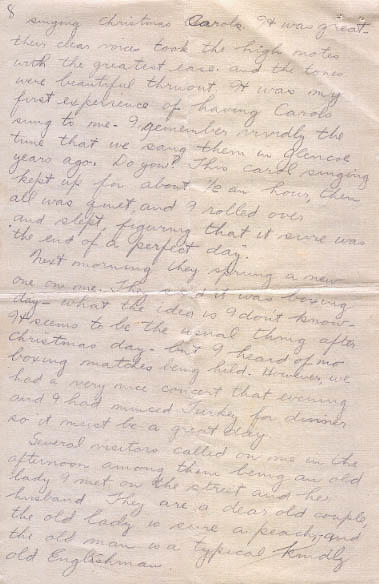 8
singing Christmas Carols. It was great-
their clear voices took the high notes
with the greatest ease. and the tones
were beautiful thruout. It was my
first experience of having Carols
sung to me. I remember vividly the
time that we sang them in Glencoe
years ago. Do you? This carol singing
kept up for about ½ an hour, then
all was quiet, and I rolled over
and slept, figuring that it sure was
"the end of a perfect day".
Next morning they sprung a new
one on me. They said it was boxing
day - what the idea is I don't know-
It seems to be the usual thing after
Christmas day - but I heard of no
boxing matches being held. However, we
had a very nice concert that evening
and I had minced Turkey for dinner
so it must be a great day
Several visitors called on me in the
afternoon among them being an old
lady I met on the street and her
husband. They are a dear old couple,
the old lady is sure a peach, and
the old man is a typical kindly
old Englishman